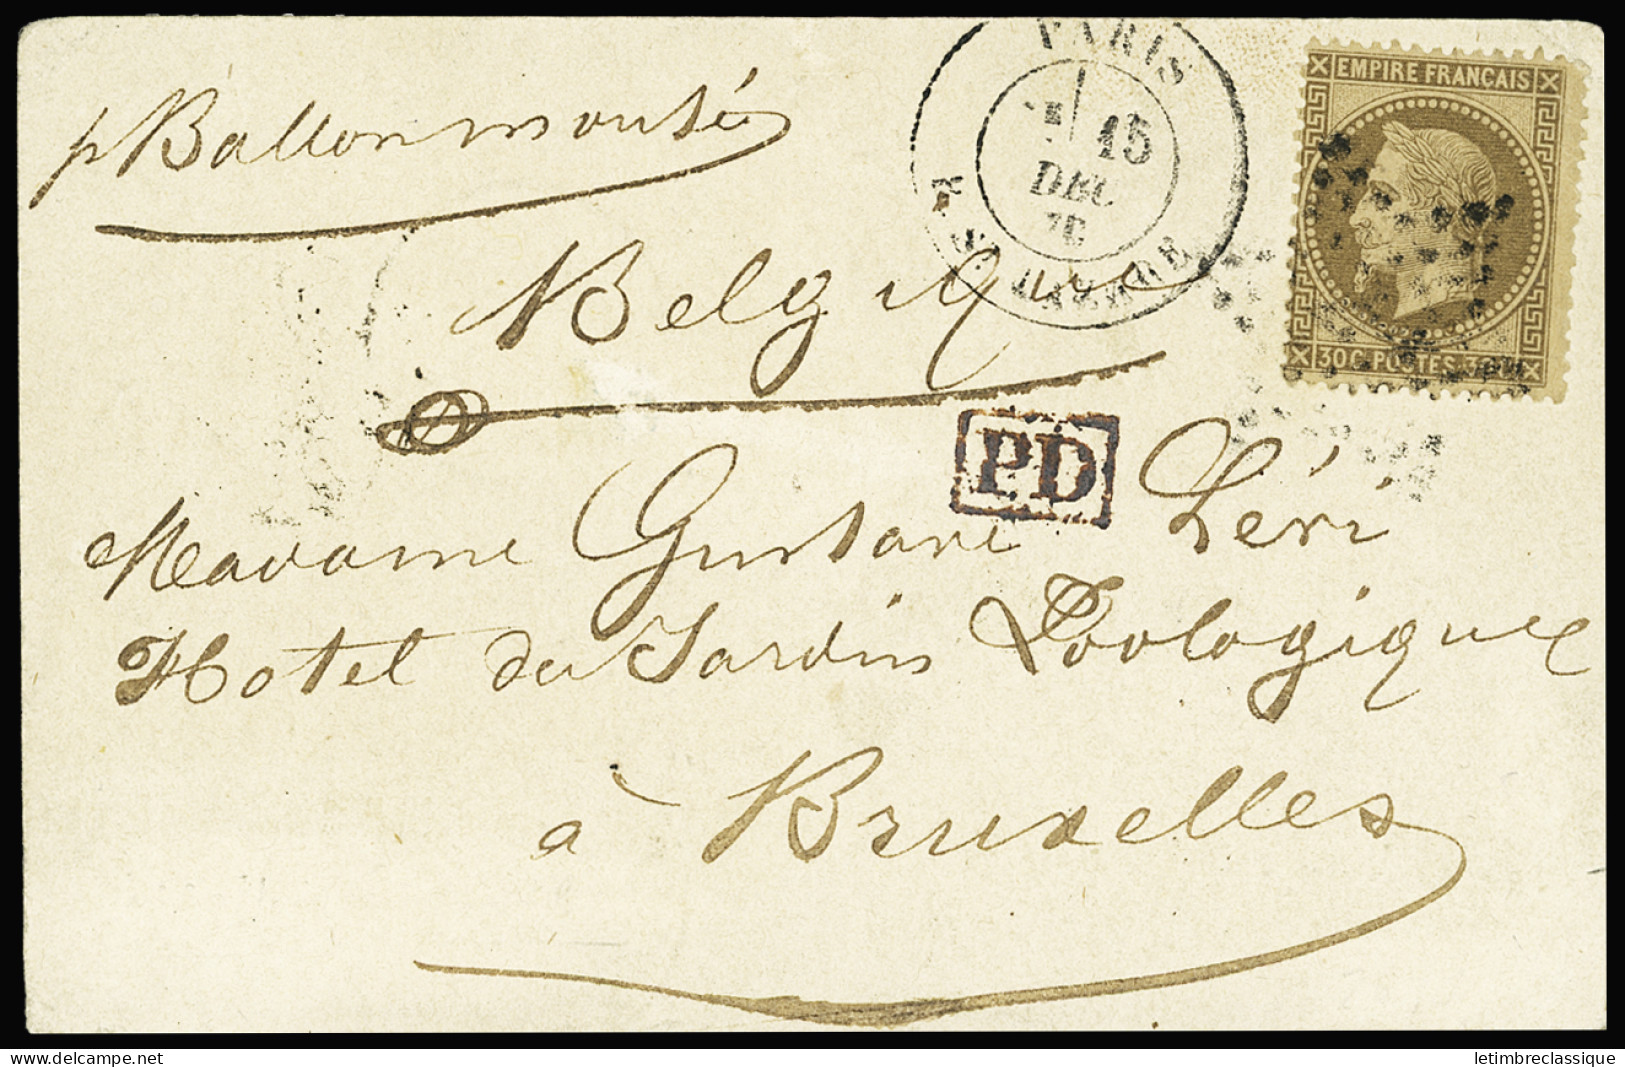 p Ballon monté
PARIS
15
DEC
70
EMPIRE FRANÇAIS
30 C POSTES 30
Belgique
PD
Madame Gustave Léri
Hotel du Jardin Zoologique
à Bruxelles
delcampe.net
letimbreclassique